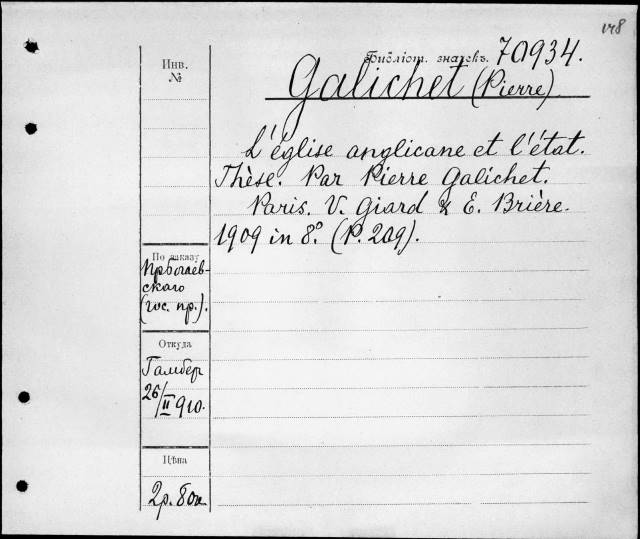 148
Инв.
№
Библіот. значекъ. 70934.
Galichet (Pierre)
L'église anglicane et l'état.
Thèse. Par Pierre Galichet.
Paris. V. Giard & E. Brière.
1909 in 8.° (P. 209).
По заказу
скаго
(гос. пр.).
Откуда
Гамбер
26/II 910.
Цѣна
2р. 80к